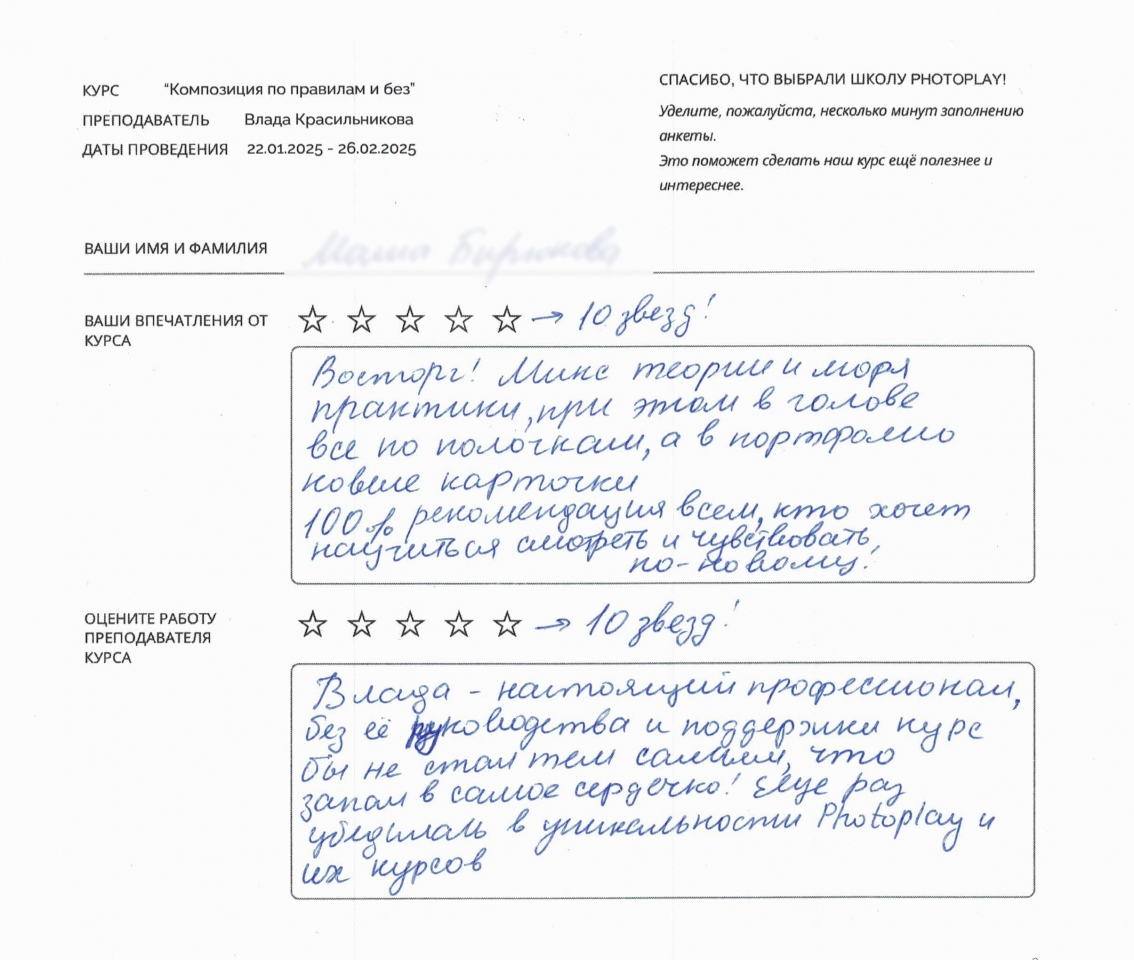 КУРС “Композиция по правилам и без”
ПРЕПОДАВАТЕЛЬ Влада Красильникова
ДАТЫ ПРОВЕДЕНИЯ 22.01.2025 - 26.02.2025
СПАСИБО, ЧТО ВЫБРАЛИ ШКОЛУ PHOTOPLAY!
Уделите, пожалуйста, несколько минут заполнению
анкеты.
Это поможет сделать наш курс ещё полезнее и
интереснее.
ВАШИ ИМЯ И ФАМИЛИЯ
ВАШИ ВПЕЧАТЛЕНИЯ ОТ
КУРСА
→ 10 звезд!
Восторг! Микс теории и моря
практики, при этом в голове
все по полочкам, а в портфолио
новые карточки
100% рекомендация всем, кто хочет
научиться смотреть и чувствовать
по-новому!
ОЦЕНИТЕ РАБОТУ
ПРЕПОДАВАТЕЛЯ
КУРСА
→ 10 звезд!
Влада - настоящий профессионал,
без её руководства и поддержки курс
бы не стал тем самым, что
запал в самое сердечко! Еще раз
убедилась в уникальности Photoplay и
их курсов